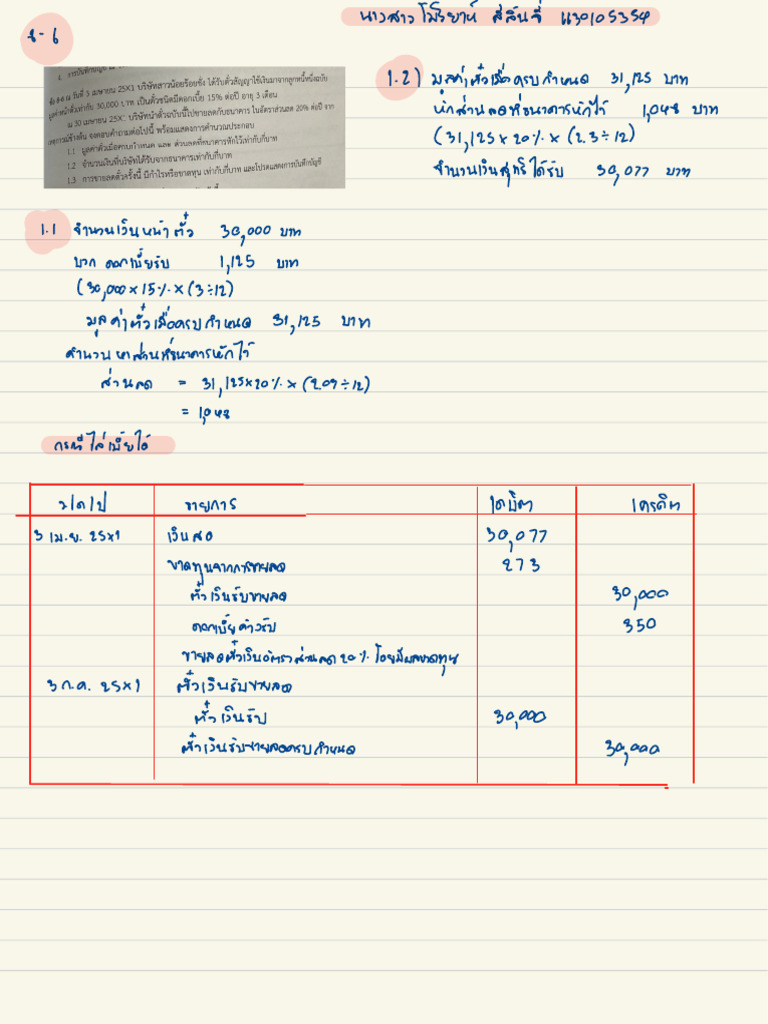 นางสาว โมไรยาห์ สีสันจี่ 1130105354
8-6
ข้อ 8-6 ณ วันที่ 3 เมษายน 25X1 บริษัทสาวน้อยร้อยชั่ง ได้รับตั๋วสัญญาใช้เงินมาจากลูกหนี้หนึ่งฉบับ
มูลค่าหน้าตั๋วเท่ากับ 30,000 บาท เป็นตั๋วชนิดมีดอกเบี้ย 15% ต่อปี อายุ 3 เดือน
ณ 30 เมษายน 25X: บริษัทนำตั๋วฉบับนี้ไปขายลดกับธนาคาร ในอัตราส่วนลด 20% ต่อปี จาก
เหตุการณ์ข้างต้น จงตอบคำถามต่อไปนี้ พร้อมแสดงการคำนวณประกอบ
1.1 มูลค่าตั๋วเมื่อครบกำหนด และ ส่วนลดที่ธนาคารหักไว้เท่ากับกี่บาท
1.2 จำนวนเงินที่บริษัทได้รับจากธนาคารเท่ากับกี่บาท
1.3 การขายลดตั๋วครั้งนี้ มีกำไรหรือขาดทุน เท่ากับกี่บาท และโปรดแสดงการบันทึกบัญชี
1.2) มูลค่าตั๋วเมื่อครบกำหนด 31,125 บาท
หักส่วนลดที่ธนาคารหักไว้ 1,048 บาท
(31,125 x 20% x (2.3÷12)
จำนวนเงินสุทธิได้รับ 30,077 บาท
1.1 จำนวนเงินหน้าตั๋ว 30,000 บาท
บวก ดอกเบี้ยรับ 1,125 บาท
(30,000 x 15% x (3÷12)
มูลค่าตั๋วเมื่อครบกำหนด 31,125 บาท
คำนวนหาส่วนที่ธนาคารหักไว้
ส่วนลด = 31,125 x 20% x (2.09÷12)
= 1,048
กรณีไล่เบี้ยได้
ว/ด/ป รายการ เดบิต เครดิต
3 เม.ย. 25x1 เงินสด 30,077
ขาดทุนจากการขายลด 273
ตั๋วเงินรับขายลด 30,000
ดอกเบี้ยค้างรับ 350
ขายลดตั๋วเงินอัตราส่วนลด 20% โดยมีผลขาดทุน
3 ก.ค. 25x1 ตั๋วเงินรับขายลด
ตั๋วเงินรับ 30,000
ตั๋วเงินรับขายลดครบกำหนด 30,000